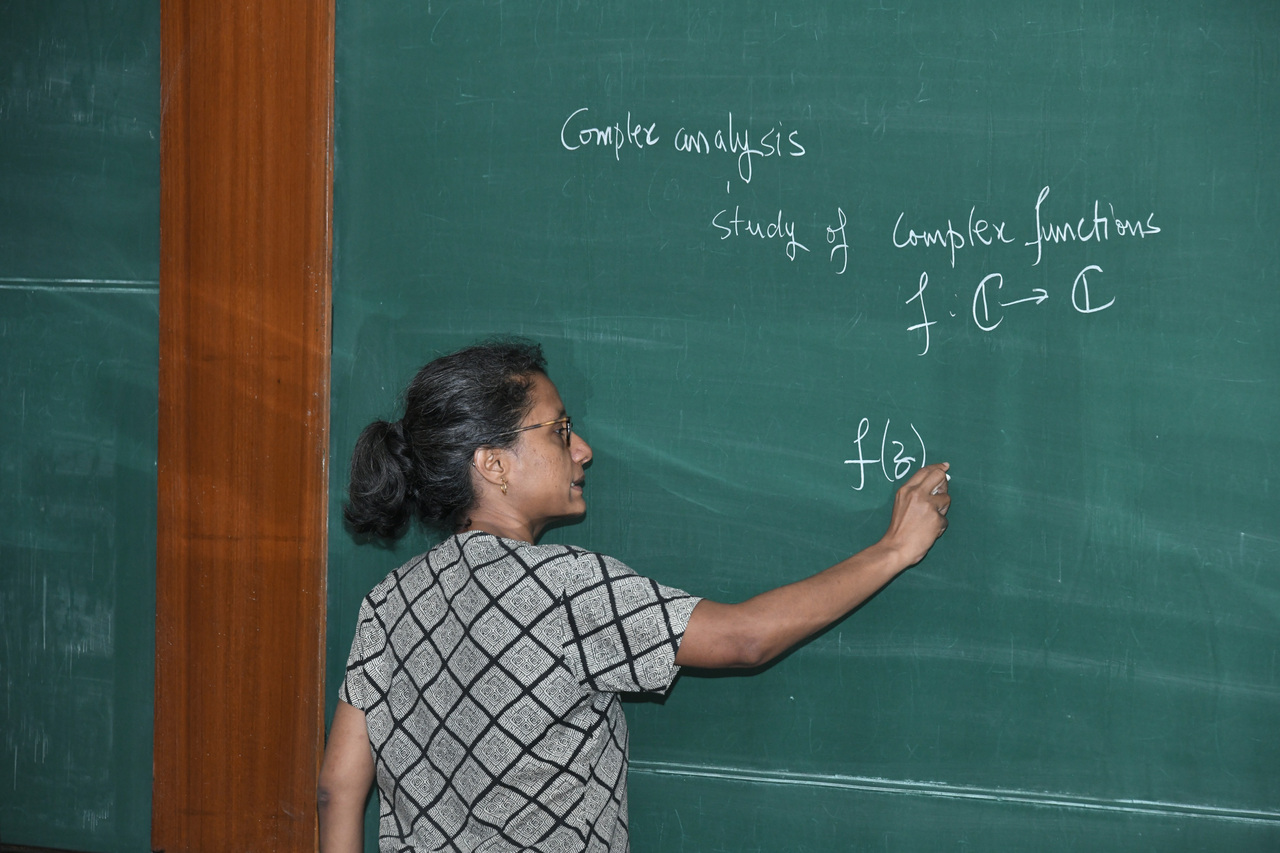 Complex analysis
study of complex functions
f : ℂ → ℂ
f(z)